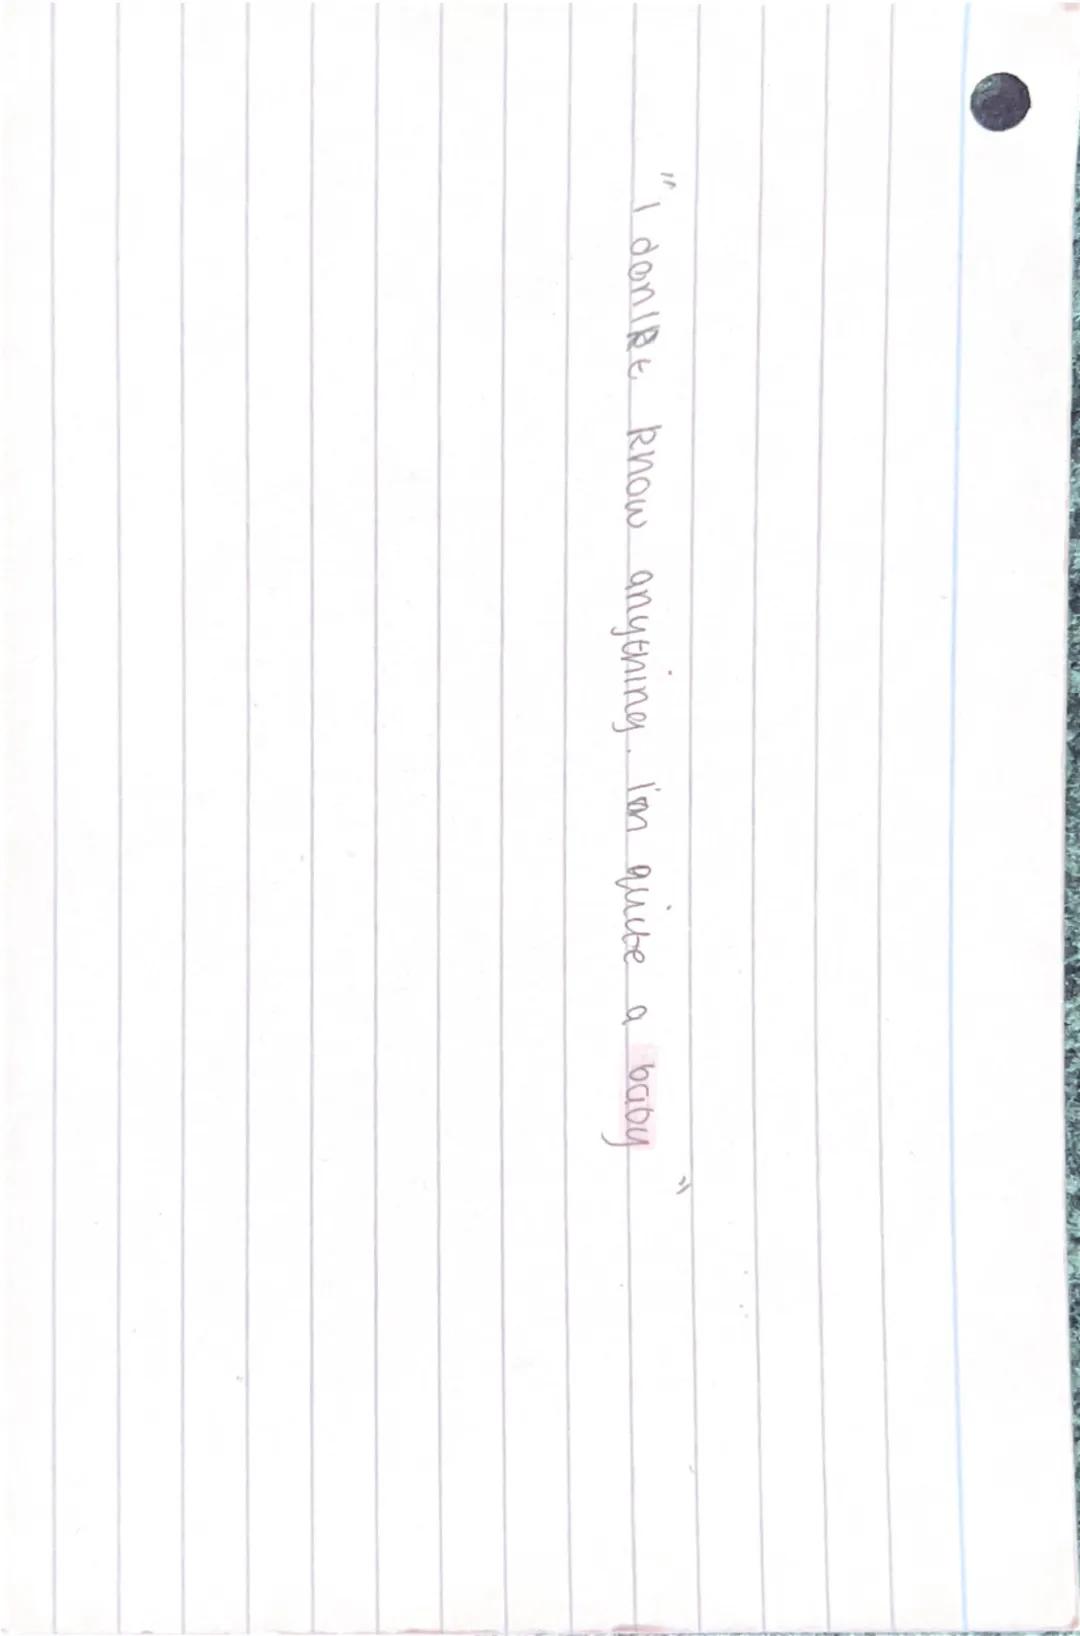 "I don't know anything. I'm quite a baby"